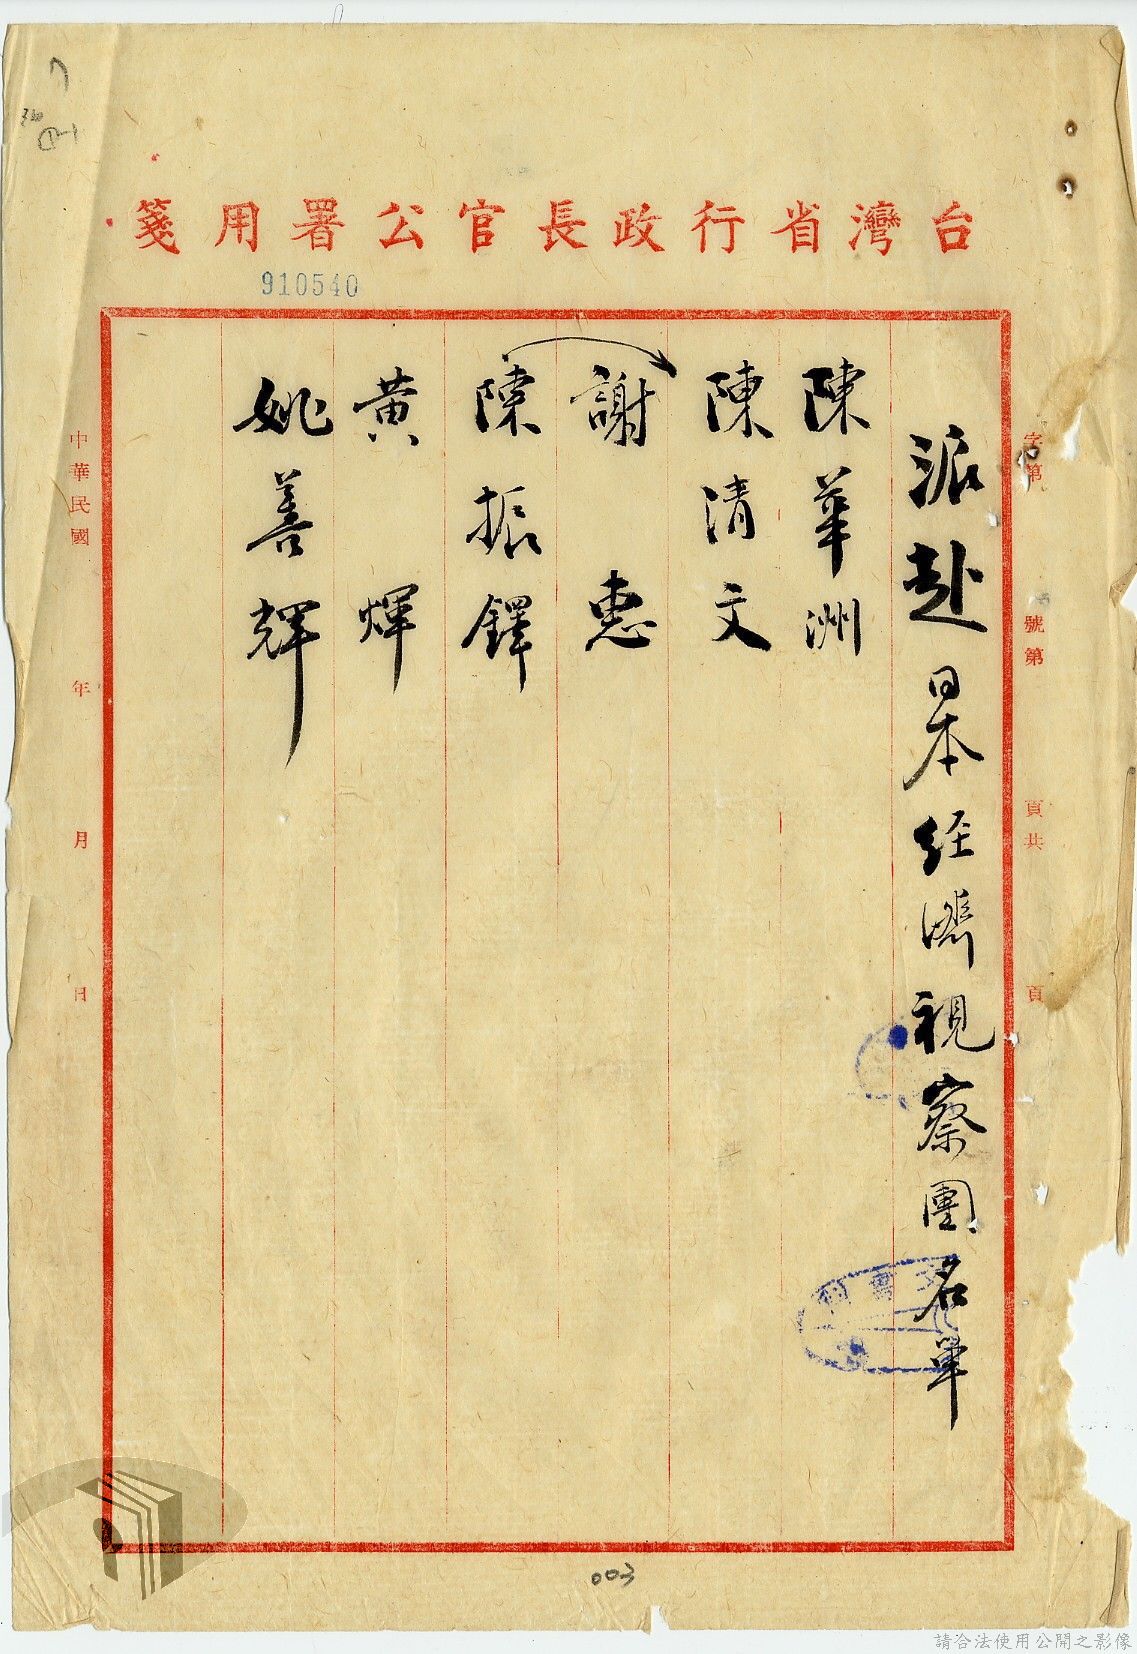 台灣省行政長官公署用箋
910540
字第 號第 頁共 頁
派赴日本經濟視察團名單
陳華洲
陳清文
謝惠
陳振鐸
黄煇
姚善輝
中華民國 年 月 日
003
請合法使用公開之影像